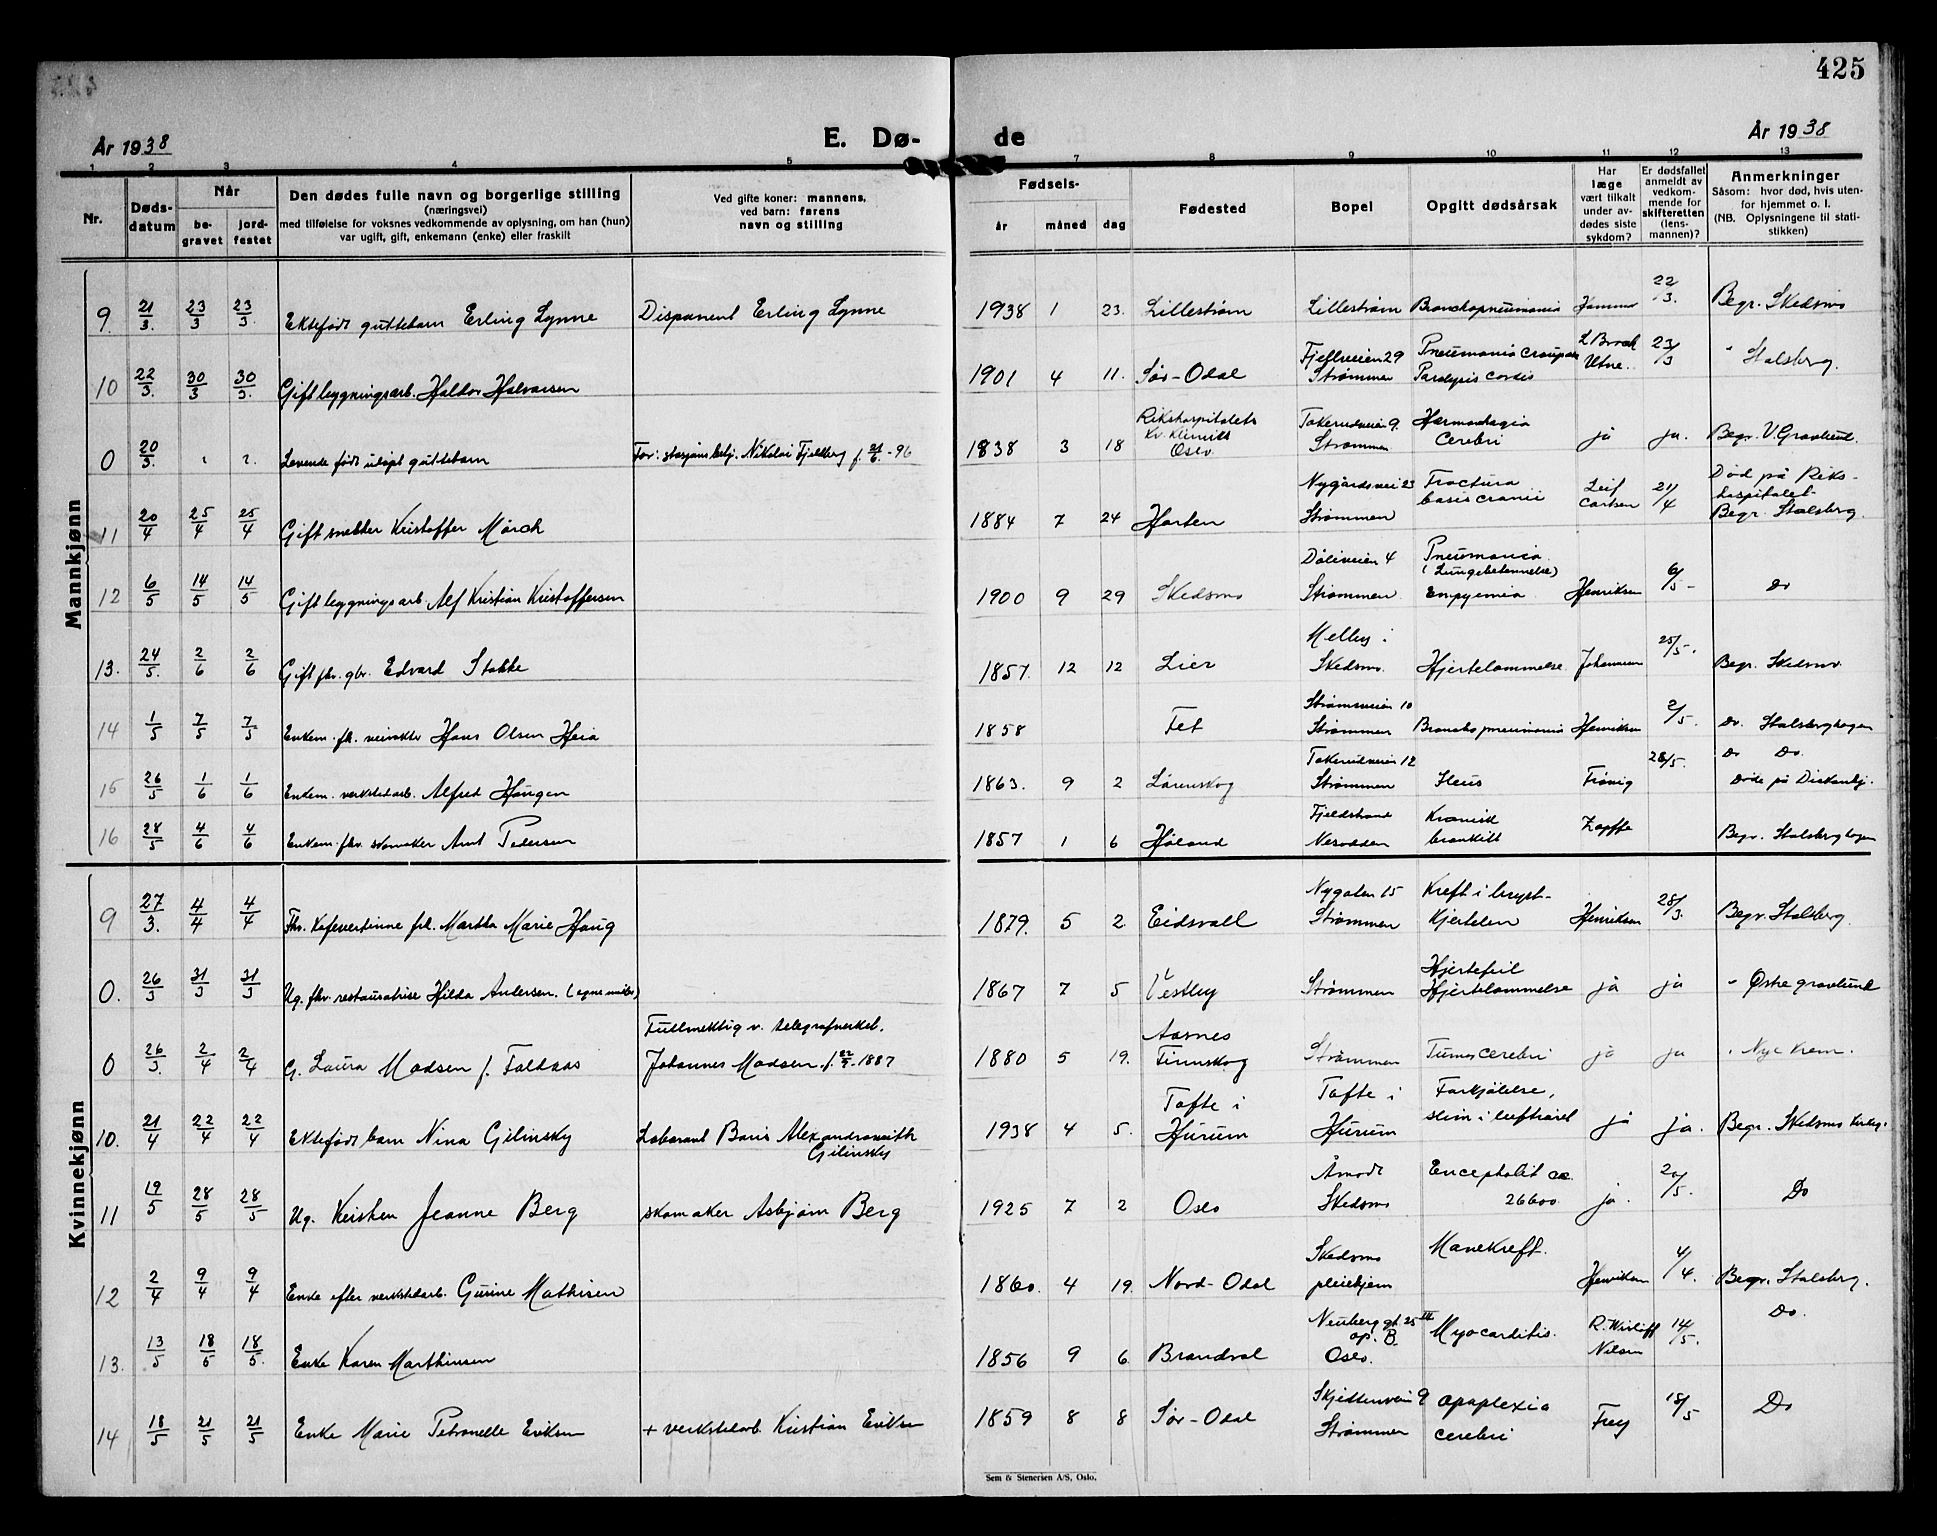 425
År 1938
E. Dø-
de
År 1938
1 2 3 4 5 7 8 9 10 11 12 13
Nr.
Døds-
datum
Når
be-
gravet
jord-
festet
Den dødes fulle navn og borgerlige stilling
(næringsvei)
med tilføielse for voksnes vedkommende av oplysning, om han (hun)
var ugift, gift, enkemann (enke) eller fraskilt
Ved gifte koner: mannens,
ved barn: farens
navn og stilling
Fødsels-
år måned dag
Fødested
Bopel
Opgitt dødsårsak
Har
læge
vært tilkalt
under av-
dødes siste
sykdom?
Er dødsfallet
anmeldt av
vedkom-
mende for
skifteretten
(lens-
mannen)?
Anmerkninger
Såsom: hvor død, hvis uten-
for hjemmet o. l.
(NB. Oplysningene til stati-
stikken)
Mannkjønn
9. 21/3. 23/3 23/3. Ektefødt guttebarn Erling Lynne Disponent Erling Lynne 1938 1 23. Lillestrøm Lillestrøm Bronchopneumonia 22/3. Begr. Skedsmo
10 22/3. 30/3 30/3. Gift bygningsarb. Haldor Halvorsen 1901 4 11. Sør-Odal Fjellveien 29 Strømmen Pneumonia crouposa Paralysis cordis L Broch Utne. 23/3 " Stalsberg.
0 20/3. Levende født udøpt guttebarn Far: stasjonsbetj. Nikolai Fjeldberg f. 21/6 -96 1938 3 18 Rikshospitalets Kv. Klinikk Oslo Takerudveien 9. Strømmen Hæmorrhagia cerebri ja ja. Begr. V. Gravlund.
11 20/4 25/4 25/4 Gift snekker Kristoffer Mörch 1884 7 24 Horten Nygårdsvei 23 Strømmen Fractura basis cranii Leif Carlsen 21/4 Død på Riks- hospitalet- Begr. Stalsberg.
12 6/5 14/5 14/5 Gift bygningsarb. Alf Kristian Kristoffersen 1900 9 29 Skedsmo Døliveien 4 Strømmen. Pneumonia (Lungebetennelse) Empyema Henriksen 6/5 - Do
13. 24/5. 2/6 2/6 Gift fhv. gbr. Edvard Stokke 1857. 12 12 Lier Melby i Skedsmo. Hjertelammelse Johannesen 25/5. Begr. Skedsmo.
14 1/5 7/5 7/5 Enkem. fh. veivokter Hans Olsen Heia 1858 Fet Strømsveien 10 Strømmen Bronchopneumonia Henriksen 2/5. Do. Stalsberghagen
15 26/5 1/6 1/6 Enkem. verkstedarb. Alfred Haugen 1863. 9 2 Lørenskog Takerudveien 12 Strømmen Ileus Frönig 28/5. Do Do. Døde på Diakonhj.
16 28/5 4/6 4/6 Enkem. fhv. skomaker Arnt Pedersen 1857 1 6 Høland Fjeldstrand Nesodden Kronisk bronkitt Zapffe Begr. Stalsberghagen
Kvinnekjønn
9 27/3. 4/4 4/4 Fhv. Kafevertinne frk. Martha Marie Haug 1879. 5 2. Eidsvoll Nygaten 15 Strømmen Kreft i bryst- kjertelen Henriksen 28/3. Begr. Stalsberg.
0. 26/3 31/3 31/3 Ug. fhv. restauratrise Hilda Andersen. (egne midler) 1867 7 5 Vestby Strømmen Hjertefeil Hjertelammelse ja ja " Østre gravlund
0 26/3. 2/4 2/4 G. Laura Madsen f. Faldaas Fullmektig v. telegrafverket. Johannes Madsen. f. 22/7 - 1887 1880 5 19. Aasnes Finnskog Strømmen Tumor cerebri ja ja " Nye Krem.
10. 21/4 22/4 22/4 Ektefødt barn Nina Gilinsky Laborant Boris Alexandrowith Gilinsky 1938 4 5. Tofte i Hurum Tofte i Hurum Forkjølelse, slim i luftrøret ja ja. Begr. Skedsmo kirkeg.
11 19/5 28/5 28/5 Ug. Kirsten Jeanne Berg skomaker Asbjørn Berg 1925 7 2 Oslo Åmodt Skedsmo Encephalit ac. 26600 ja. 20/5. Do
12 2/4 9/4 9/4 Enke efter verkstedarb. Gurine Mathisen 1860. 4 19. Nord-Odal Skedsmo pleiehjem Mavekreft. Henriksen 4/4. Begr. Stalsberg.
13. 13/5 18/5 18/5. Enke Karen Marthinsen 1856 9 6. Brandval Neuberg gt. 25 III op. B. Oslo. Myocarditis. Nilsen 14/5. Do.
14 18/5 21/5 21/5 Enke Marie Petronelle Eriksen + verkstedarb. Kristian Eriksen 1859 8 8 Sør-Odal Skjettenveien 9 Strømmen apoplexia cerebri Frey 18/5 Do
Sem & Stenersen A/S, Oslo.